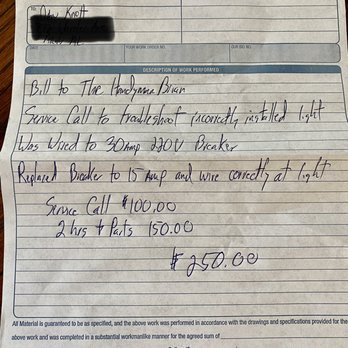 TO:
Knott
DATE YOUR WORK ORDER NO. OUR BID NO.
DESCRIPTION OF WORK PERFORMED
Bill to The Handyman Brian
Service Call to troubleshoot incorrectly installed light
Was Wired to 30 Amp 220V Breaker
Replaced Breaker to 15 Amp and wire correctly at light
Service Call $100.00
2 hrs + Parts 150.00
$250.00
All Material is guaranteed to be as specified, and the above work was performed in accordance with the drawings and specifications provided for the
above work and was completed in a substantial workmanlike manner for the agreed sum of